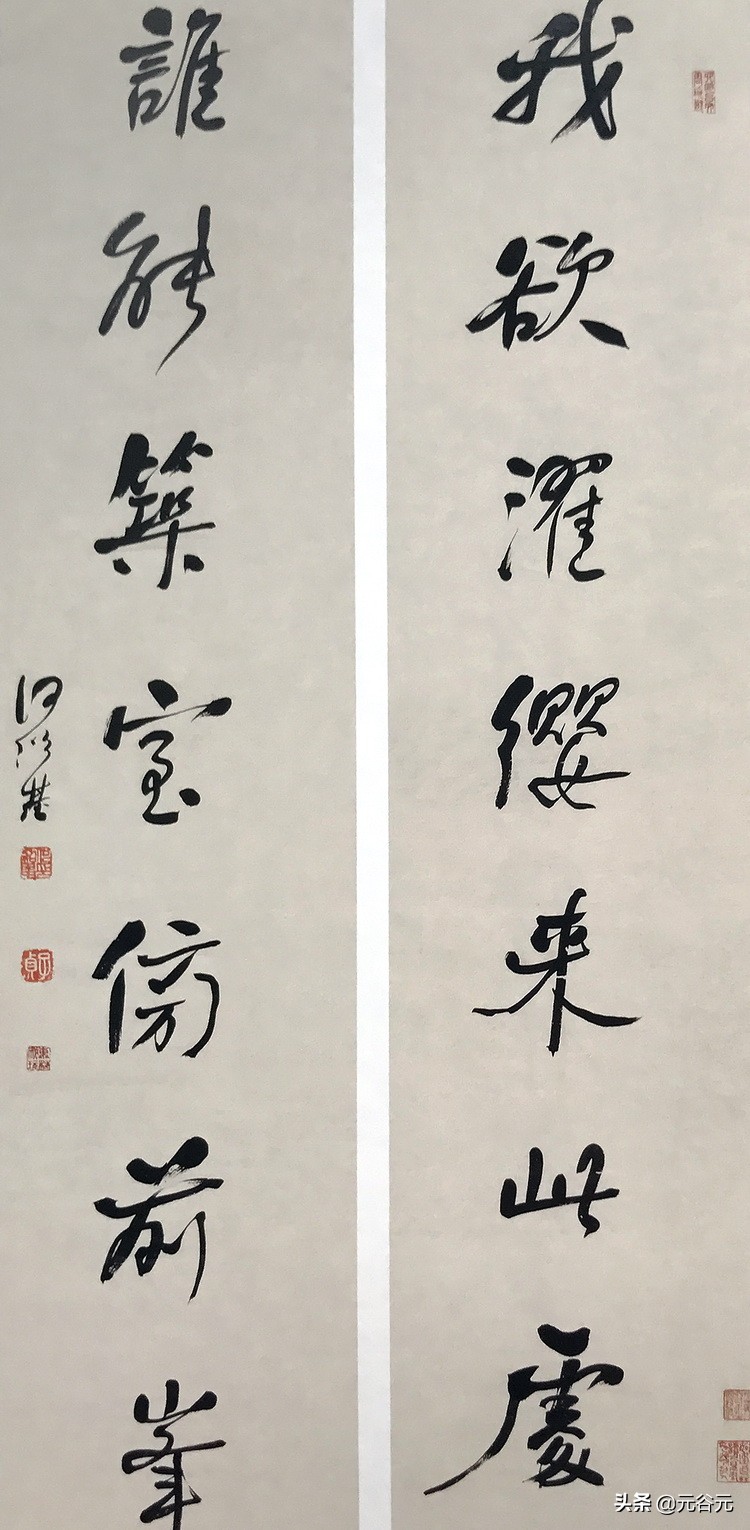 我欲濯纓来此處
誰能築室傍前峯
何紹基
头条 @元谷元